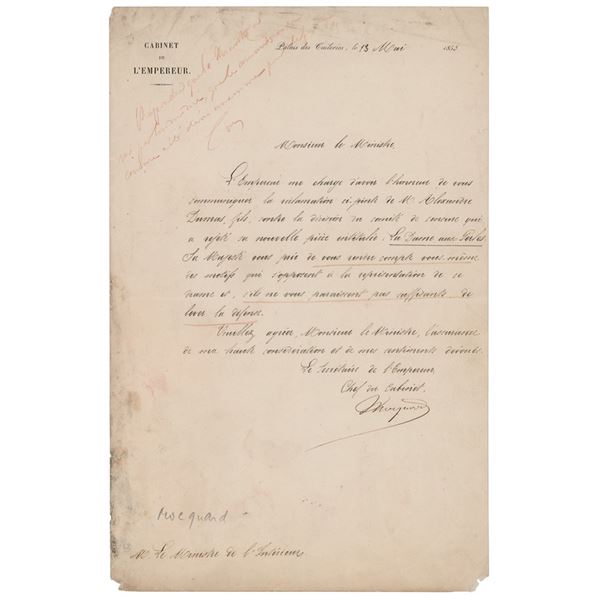 CABINET
DE
L'EMPEREUR.
Palais des Tuileries, le 13 Mai 1853
Monsieur le Ministre,
L'Empereur me charge d'avoir l'honneur de vous
communiquer la réclamation ci-jointe de M. Alexandre
Dumas, fils, contre la décision du comité de censure qui
a rejeté sa nouvelle pièce intitulée: La Dame aux Perles.
Sa Majesté vous prie de vous rendre compte vous même
des motifs qui s'opposent à la représentation de ce
drame et, s'ils ne vous paraissent pas suffisants, de
lever la défense.
Veuillez agréer, Monsieur le Ministre, l'assurance
de ma haute considération et de mes sentiments dévoués.
Le Secrétaire de l'Empereur,
Chef du Cabinet,
Mocquard
Mocquard
M. Le Ministre de l'Intérieur